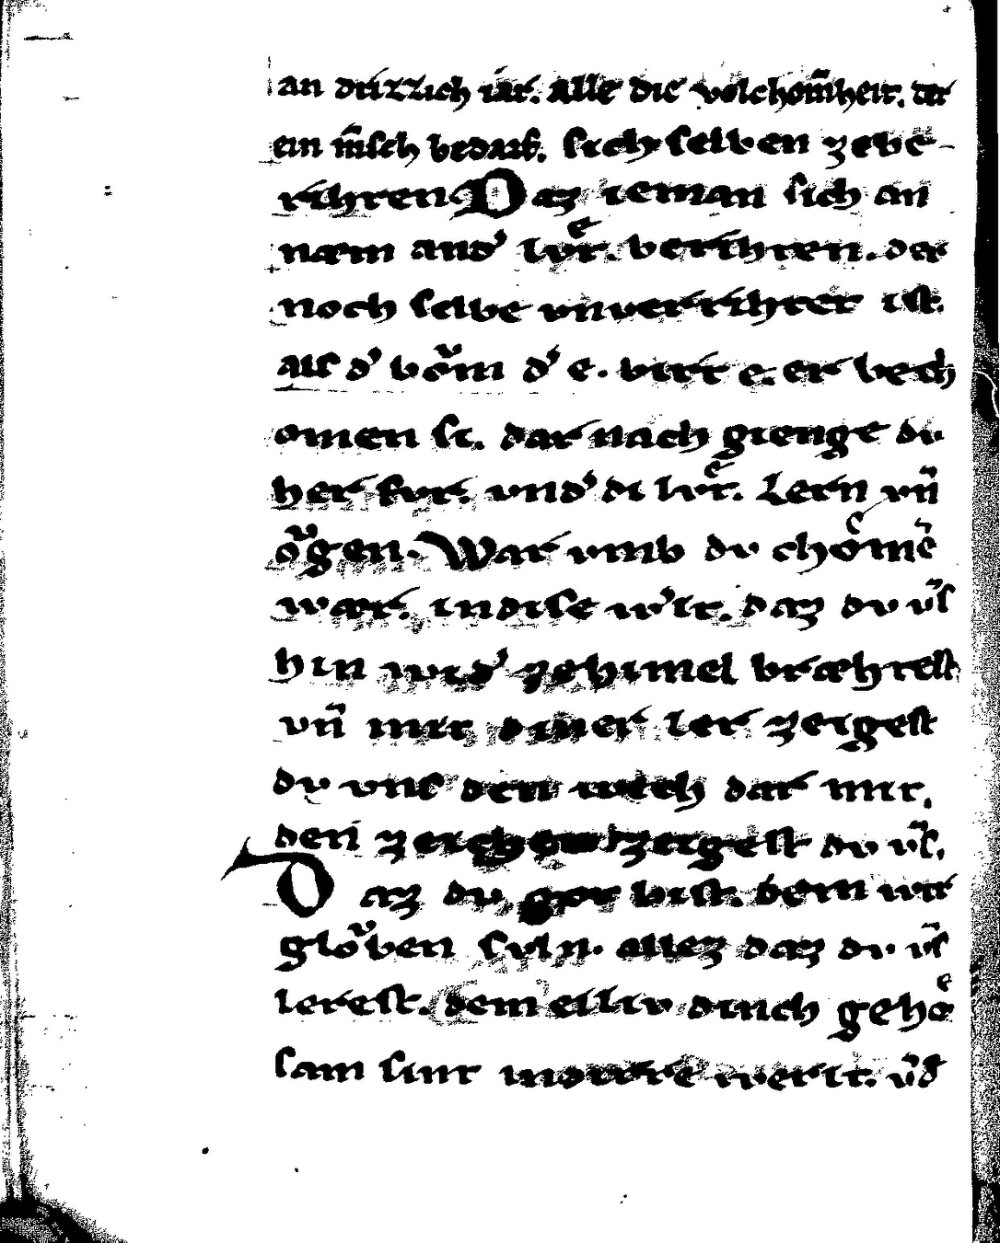 an drizzich iar. alle die volchom̄heit. der
ein m̄sch bedarf. sich selben zebe-
rihten Daz ieman sich an
næm and' lvͤt. berihten. der
noch selbe vnverrihtet ist.
als d' boͮm d' e. birt e. er bech
omen si. dar nach gienge dv
her fvr. vnd' di lvͤt. Lern vn̄
oͮgen. War vmb dv choͤmē
wær. in dise w'lt. daz dv v̄s
hin wid' zehimel bræhtest
vn̄ mit diner ler zeigest
dv vns den wech dar mit.
den zeichen zeigest dv v̄s.
Daz dv got bist. dem wir
gloͮben svln. allez daz dv v̄s
lerest. dem elliv dinch gehoͤ
sam sint in der werlt. v̄d